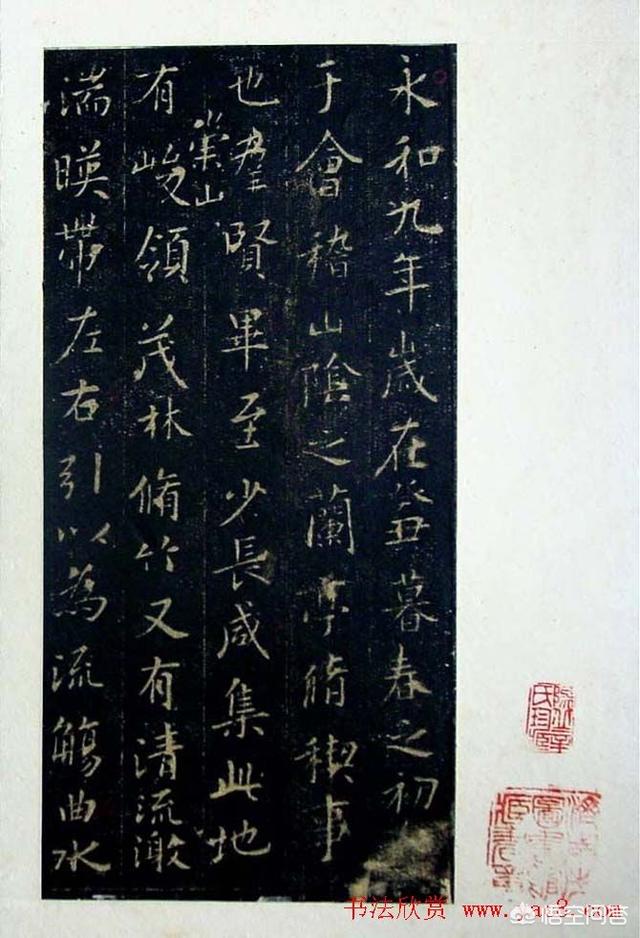 永和九年歲在癸丑暮春之初
于會稽山陰之蘭亭脩稧事
也羣賢畢至少長咸集此地
有崇山峻領茂林脩竹又有清流激
湍暎帶左右引以為流觴曲水
书法欣赏
悟空问答